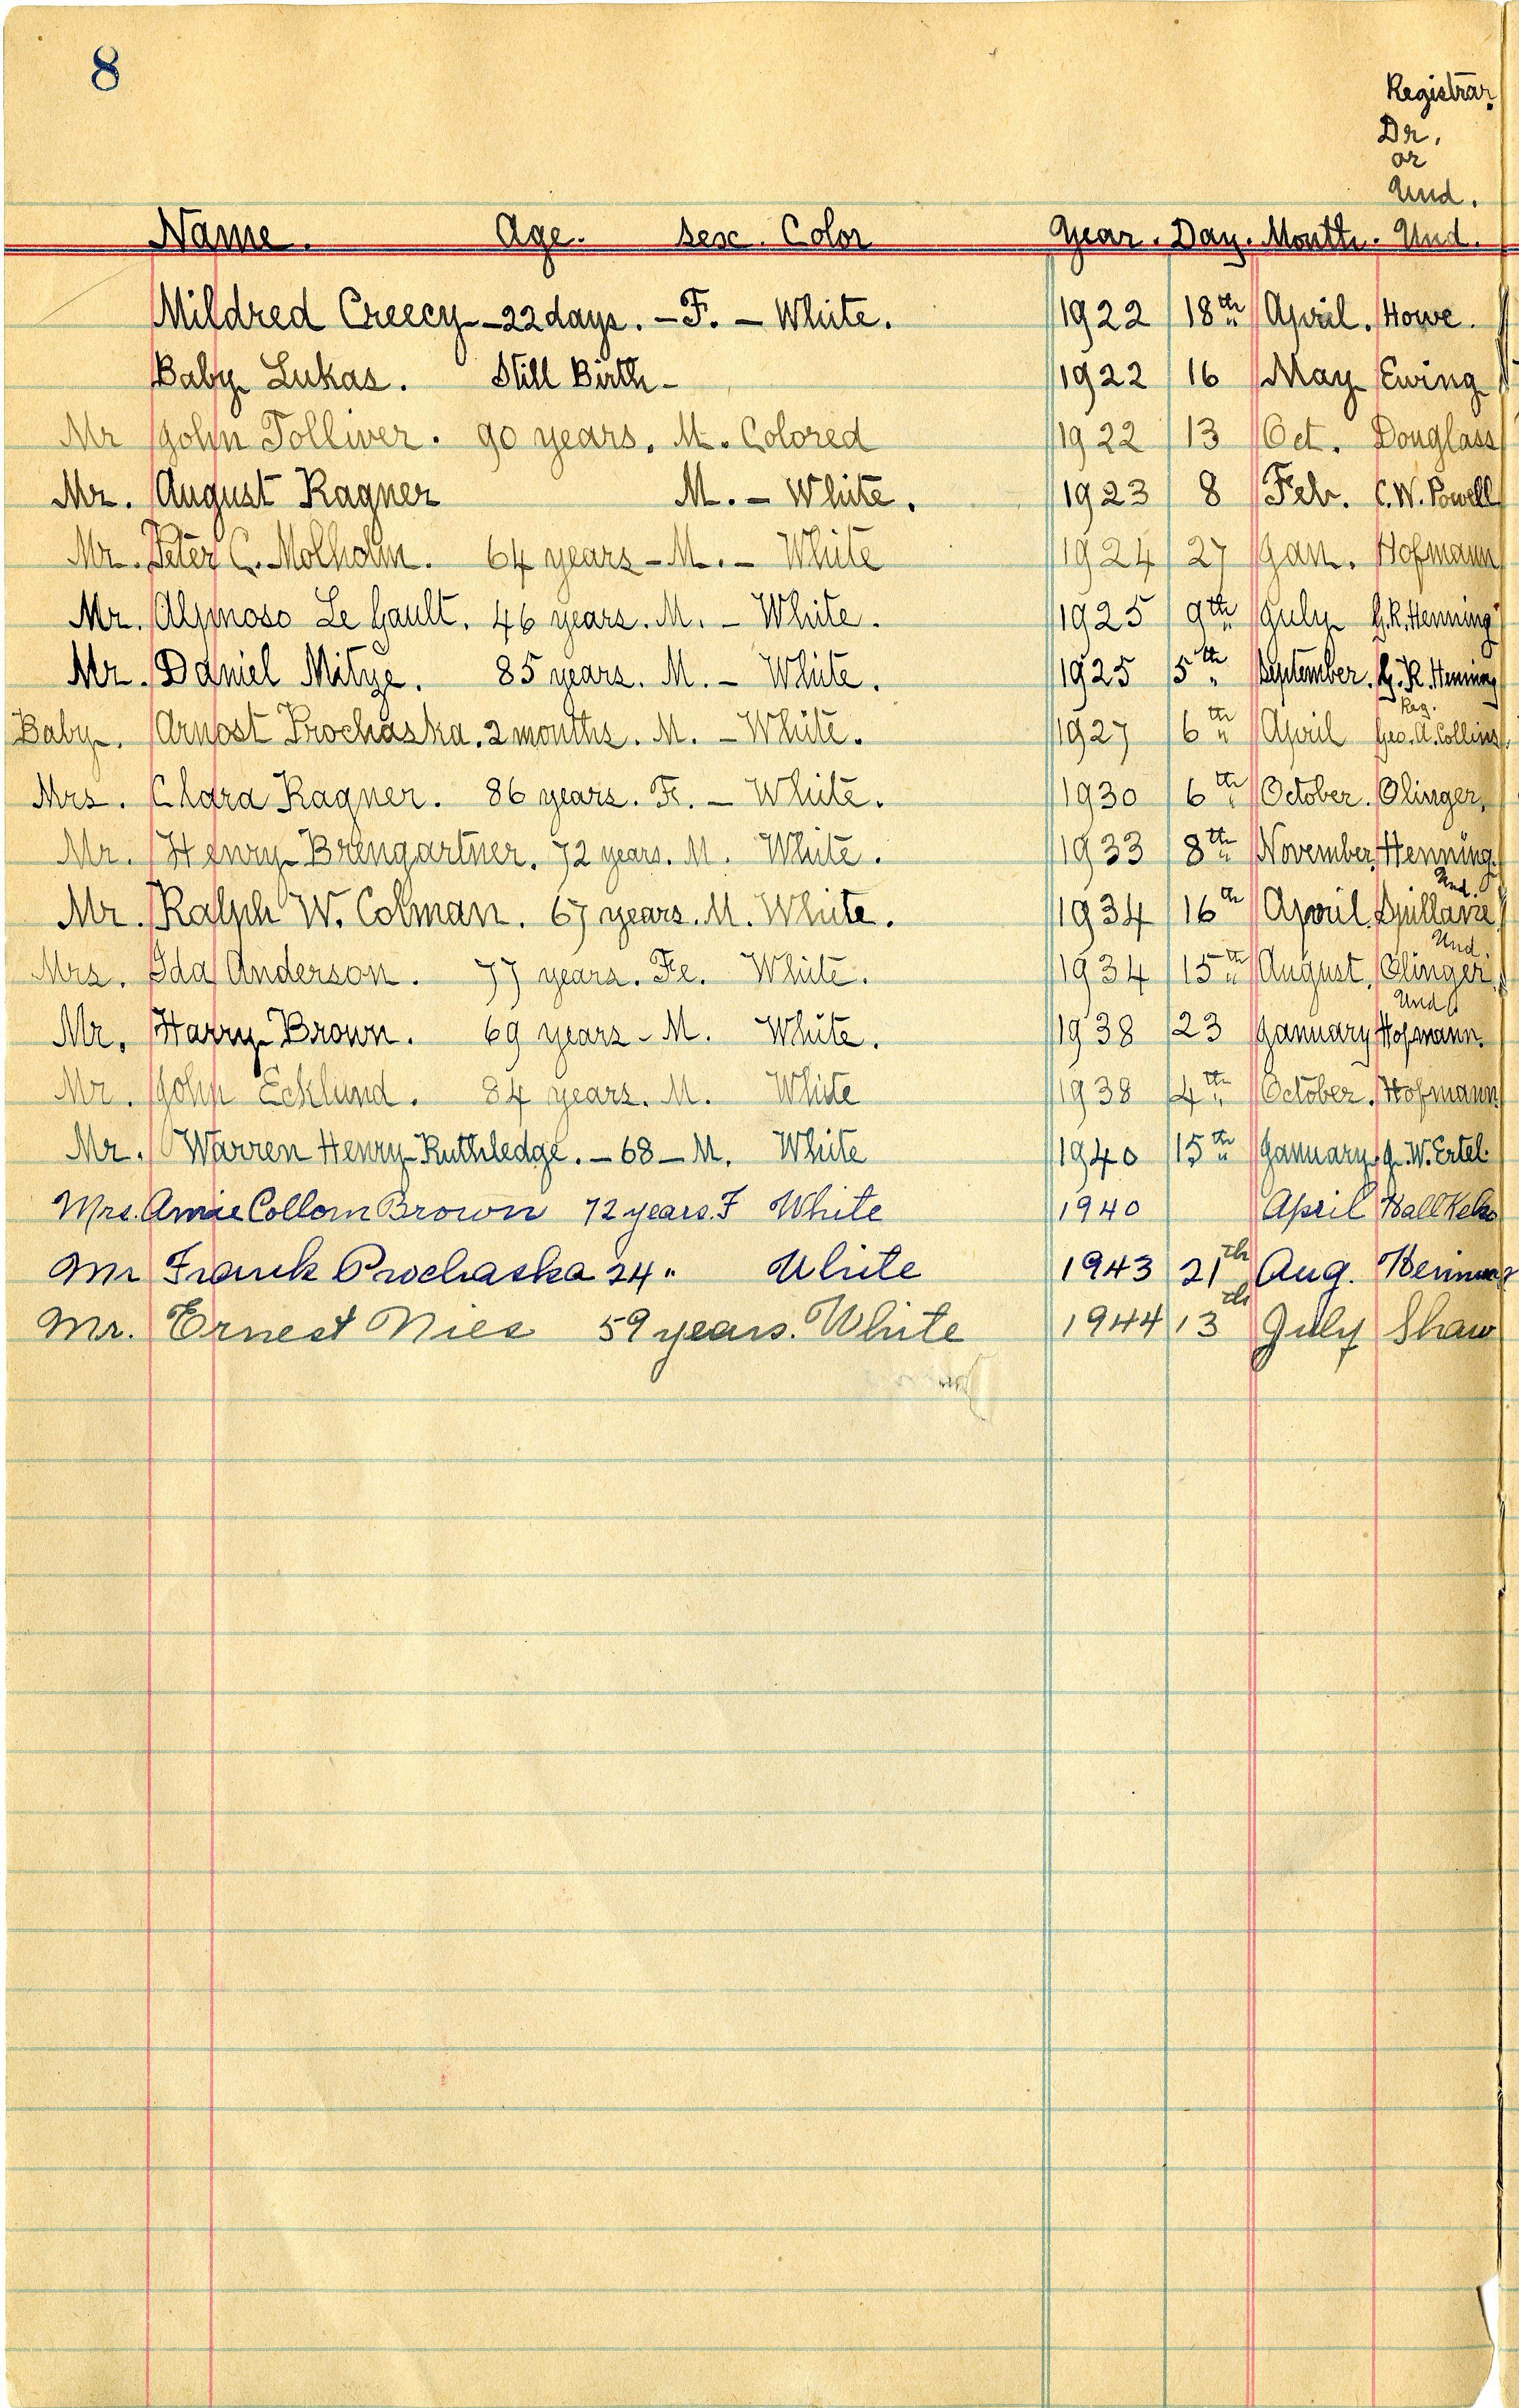 8
Registrar.
Dr.
or
Und.
Name. Age. Sex. Color Year. Day. Month. Und.
Mildred Creecy - 22 days. - F. - White. 1922 18th April. Howe.
Baby Lukas. Still Birth - 1922 16 May Ewing
Mr John Tolliver. 90 years. M. Colored 1922 13 Oct. Douglass
Mr. August Ragner M. - White. 1923 8 Feb. C. W. Powell
Mr. Peter C. Molholm. 64 years - M. - White 1924 27 Jan. Hofmann
Mr. Le Gault. 46 years. M. - White. 1925 9th July G. R. Henning
Mr. Daniel Mitze. 85 years. M. - White. 1925 5th September. G. R. Henning
Reg.
Baby. Arnost Prochaska. 2 months. M. - White. 1927 6th April Geo. A. Collins.
Mrs. Clara Ragner. 86 years. Fe. - White. 1930 6th October. Olinger.
Mr. Henry Brengartner. 72 years. M. White. 1933 8th November. Henning.
Und.
Mr. Ralph W. Colman. 67 years. M. White. 1934 16th April. Spillane
Und.
Mrs. Ida Anderson. 77 years. Fe. White. 1934 15th August. Olinger.
Und.
Mr. Harry Brown. 69 years - M. White. 1938 23 January Hofmann.
Mr. John Ecklund. 84 years. M. White 1938 4th October. Hofmann
Mr. Warren Henry Ruthledge. - 68 - M. White 1940 15th January. W. Ertel.
Mrs. Amie Collom Brown 72 years. F White 1940 April Hall
Mr Frank Prochaska 24 " White 1943 21th Aug. Henning
Mr. Ernest Nies 59 years. White 1944 13th July Shaw